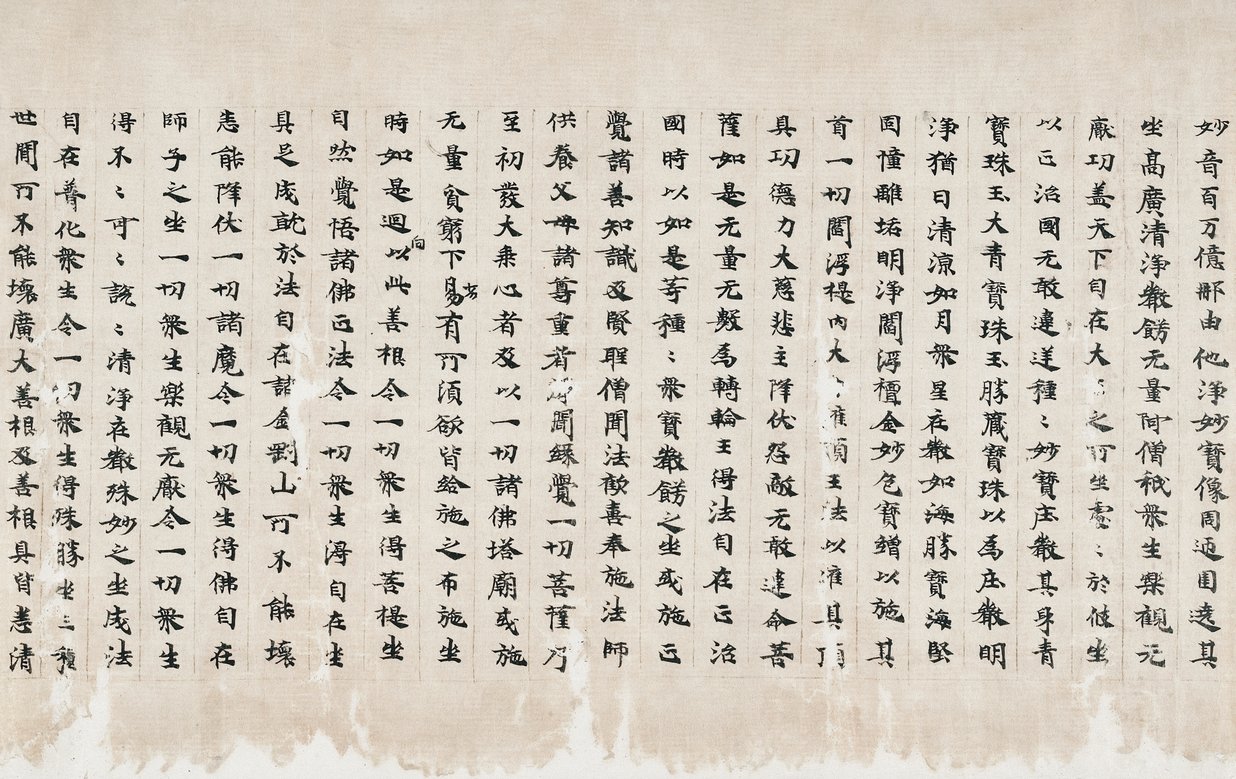 妙音百万億那由他淨妙寶像周迊圍遶其
坐髙廣清淨嚴餝无量阿僧祇衆生樂觀无
厭功盖天下自在大之所坐處〻於彼坐
以正治國无敢違逆種〻妙寶庄嚴其身青
寶珠玉大青寶珠玉勝藏寶珠以為庄嚴明
淨猶日清涼如月衆星在嚴如海勝寶海堅
固幢離垢明淨閻浮檀金妙色寶繒以施其
首一切閻浮提内大灌頂王法以灌其頂
具功德力大慈悲主降伏怨敵无敢違命菩
薩如是无量无數為轉輪王得法自在正治
國時以如是等種〻衆寶嚴餝之坐或施正
覺諸善知識及賢聖僧聞法歡喜奉施法師
供養父母諸尊重者聞緣覺一切菩薩乃
至初發大乘心者及以一切諸佛塔廟或施
无量貧窮下劣易有所須欲皆給施之布施坐
時如是迴向以此善根令一切衆生得菩提坐
自然覺悟諸佛正法令一切衆生得自在坐
具足成就於法自在諸金剛山所不能壞
悉能降伏一切諸魔令一切衆生得佛自在
師子之坐一切衆生樂觀无厭令一切衆生
得不〻可〻說〻清淨在嚴殊妙之坐成法
自在普化衆生令一切衆生得殊勝坐三種
世間所不能壞廣大善根及善根具皆悉清